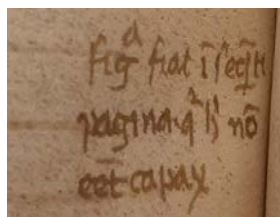 fig̅ᵃ fiat ī seq̅ti
pagina. qᵃ h̕ nō
eēt capax